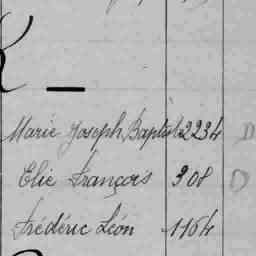 Marie Joseph Baptiste 2234 D
Elie François 308 D
Frédéric Léon 1164